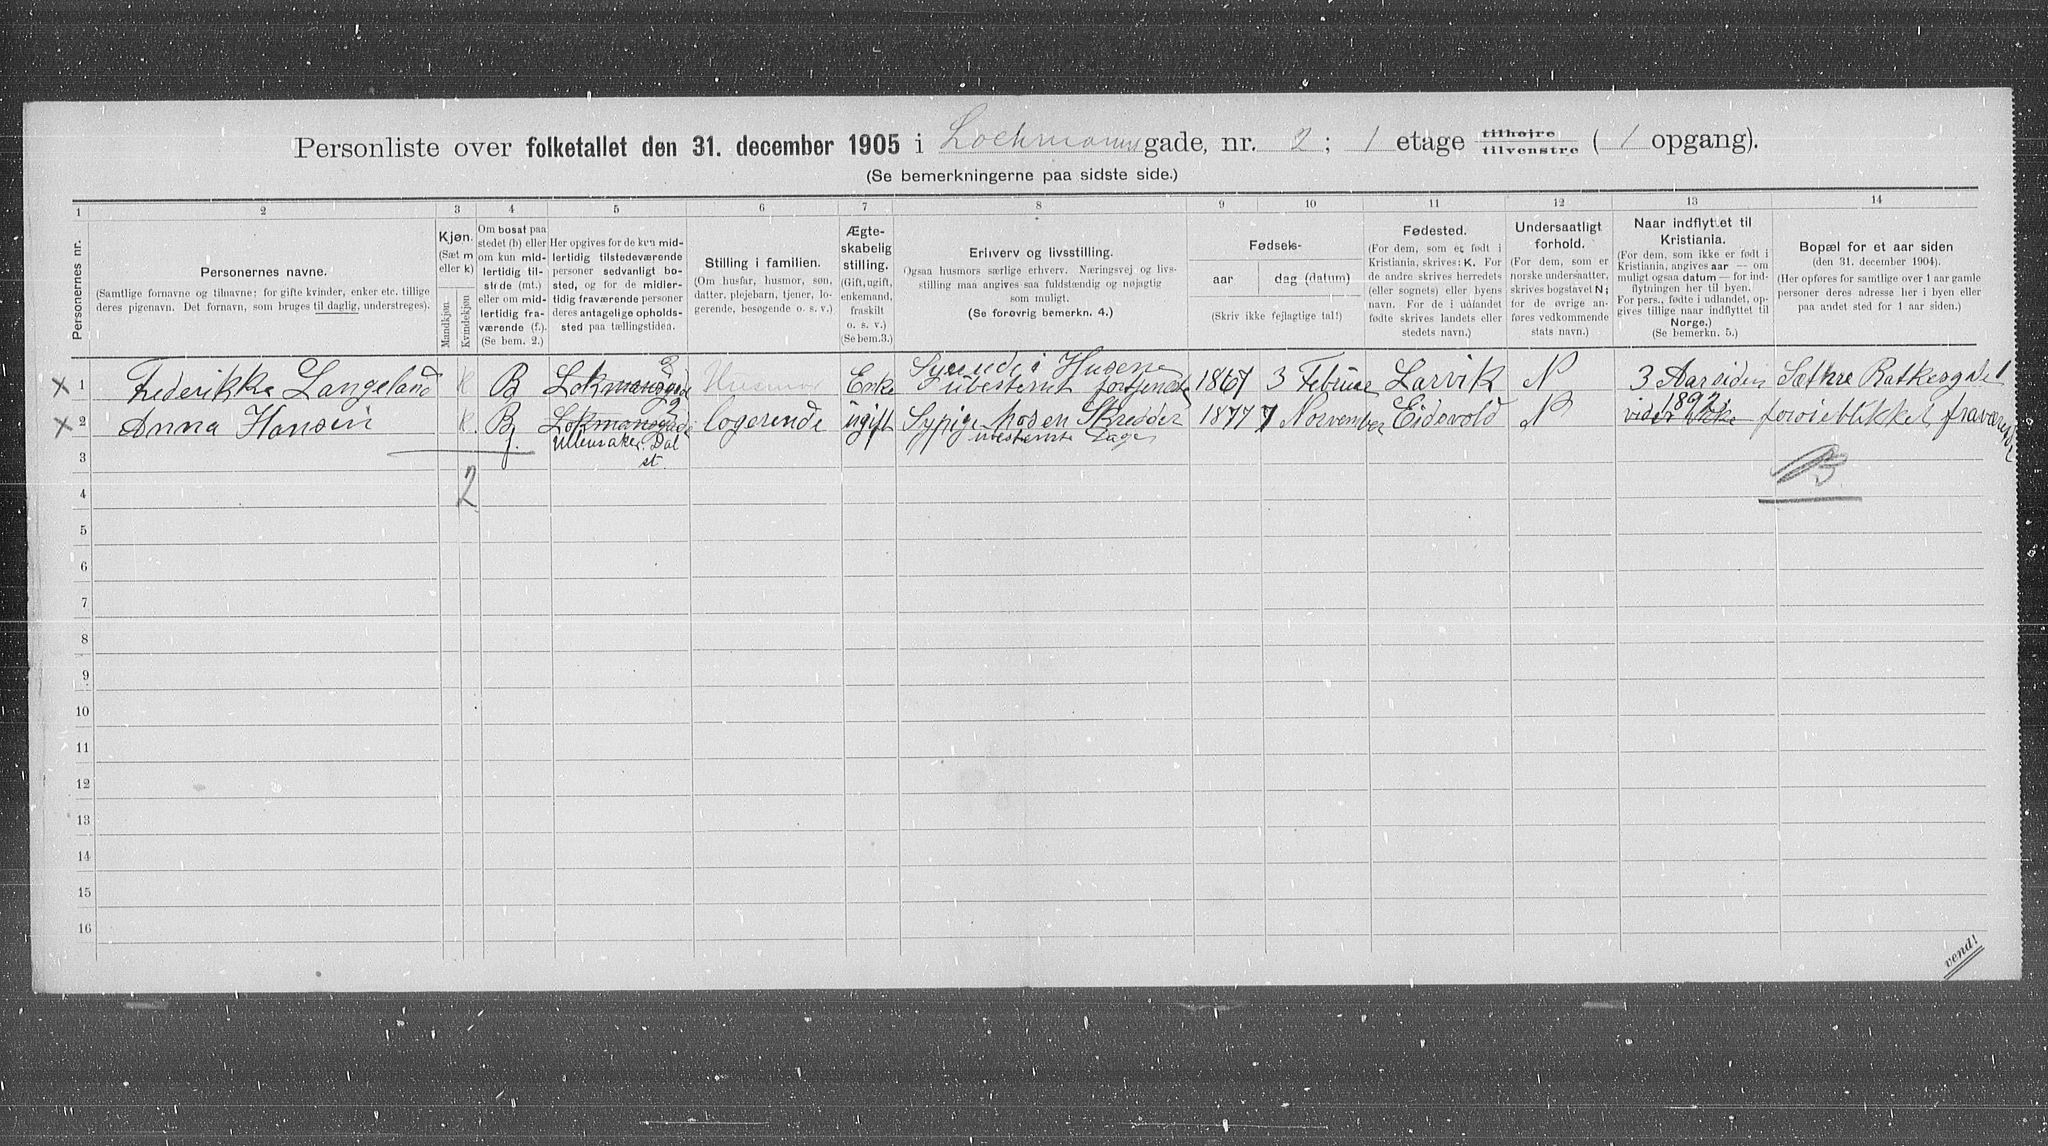 Personliste over folketallet den 31. december 1905 i Lochmanns gade, nr. 2; 1 etage tilhøjre tilvenstre (1 opgang).
(Se bemerkningerne paa sidste side.)
1 2 3 4 5 6 7 8 9 10 11 12 13 14
Personernes nr.
Personernes navne.
(Samtlige fornavne og tilnavne; for gifte kvinder, enker etc. tillige
deres pigenavn. Det fornavn, som bruges til daglig, understreges).
Kjøn.
(Sæt m
eller k)
Mandkjøn
Kvindekjøn
Om bosat paa
stedet (b) eller
om kun mid-
lertidig til-
stede (mt.)
eller om mid-
lertidig fra-
værende (f.).
(Se bem. 2.)
Her opgives for de kun mid-
lertidig tilstedeværende
personer sedvanligt bo-
sted, og for de midler-
tidig fraværende personer
deres antagelige opholds-
sted paa tællingstiden.
Stilling i familien.
(Om husfar, husmor, søn,
datter, plejebarn, tjener, lo-
gerende, besøgende o. s. v.)
Ægte-
skabelig
stilling.
(Gift, ugift,
enkemand,
fraskilt
o. s. v.)
(Se bem.3.)
Erhverv og livsstilling.
Ogsaa husmors særlige erhverv. Næringsvej og livs-
stilling maa angives saa fuldstændig og nøjagtig
som muligt.
(Se forøvrig bemerkn. 4.)
Fødsels-
aar dag (datum)
(Skriv ikke fejlagtige tal!)
Fødested.
(For dem, som er født i
Kristiania, skrives: K. For
de andre skrives herredets
(eller sognets) eller byens
navn. For de i udlandet
fødte skrives landets eller
stedets navn.)
Undersaatligt
forhold.
(For dem, som er
norske undersaatter,
skrives bogstavet N;
for de øvrige an-
føres vedkommende
stats navn.)
Naar indflyttet til
Kristiania.
(For dem, som ikke er født i
Kristiania, angives aar — om
muligt ogsaa datum — for ind-
flytningen her til byen.
For pers., fødte i udlandet, op-
gives tillige naar indflyttet til
Norge.)
(Se bemerkn. 5.)
Bopæl for et aar siden
(den 31. december 1904).
(Her opføres for samtlige over 1 aar gamle
personer deres adresse her i byen eller
paa andet sted for 1 aar siden.)
x 1 Frederikke Langeland K B Lokmansgade 2 Husmor Enke Syende i Husene ubestemt fortjeneste 1867 3 Februar Larvik N 3 Aar siden Sæthre Ratkesgade 1
x 2 Anna Hansen K. B Lokmansgade 2 logerende ugift Sypige hos en Skredder 1877 7 November Eidsvold N 1892 forøieblikket fraværende
f. Ullensaker. Dal
st.
ubestemte
3
2
B
4
5
6
7
8
9
10
11
12
13
14
15
16
vend!